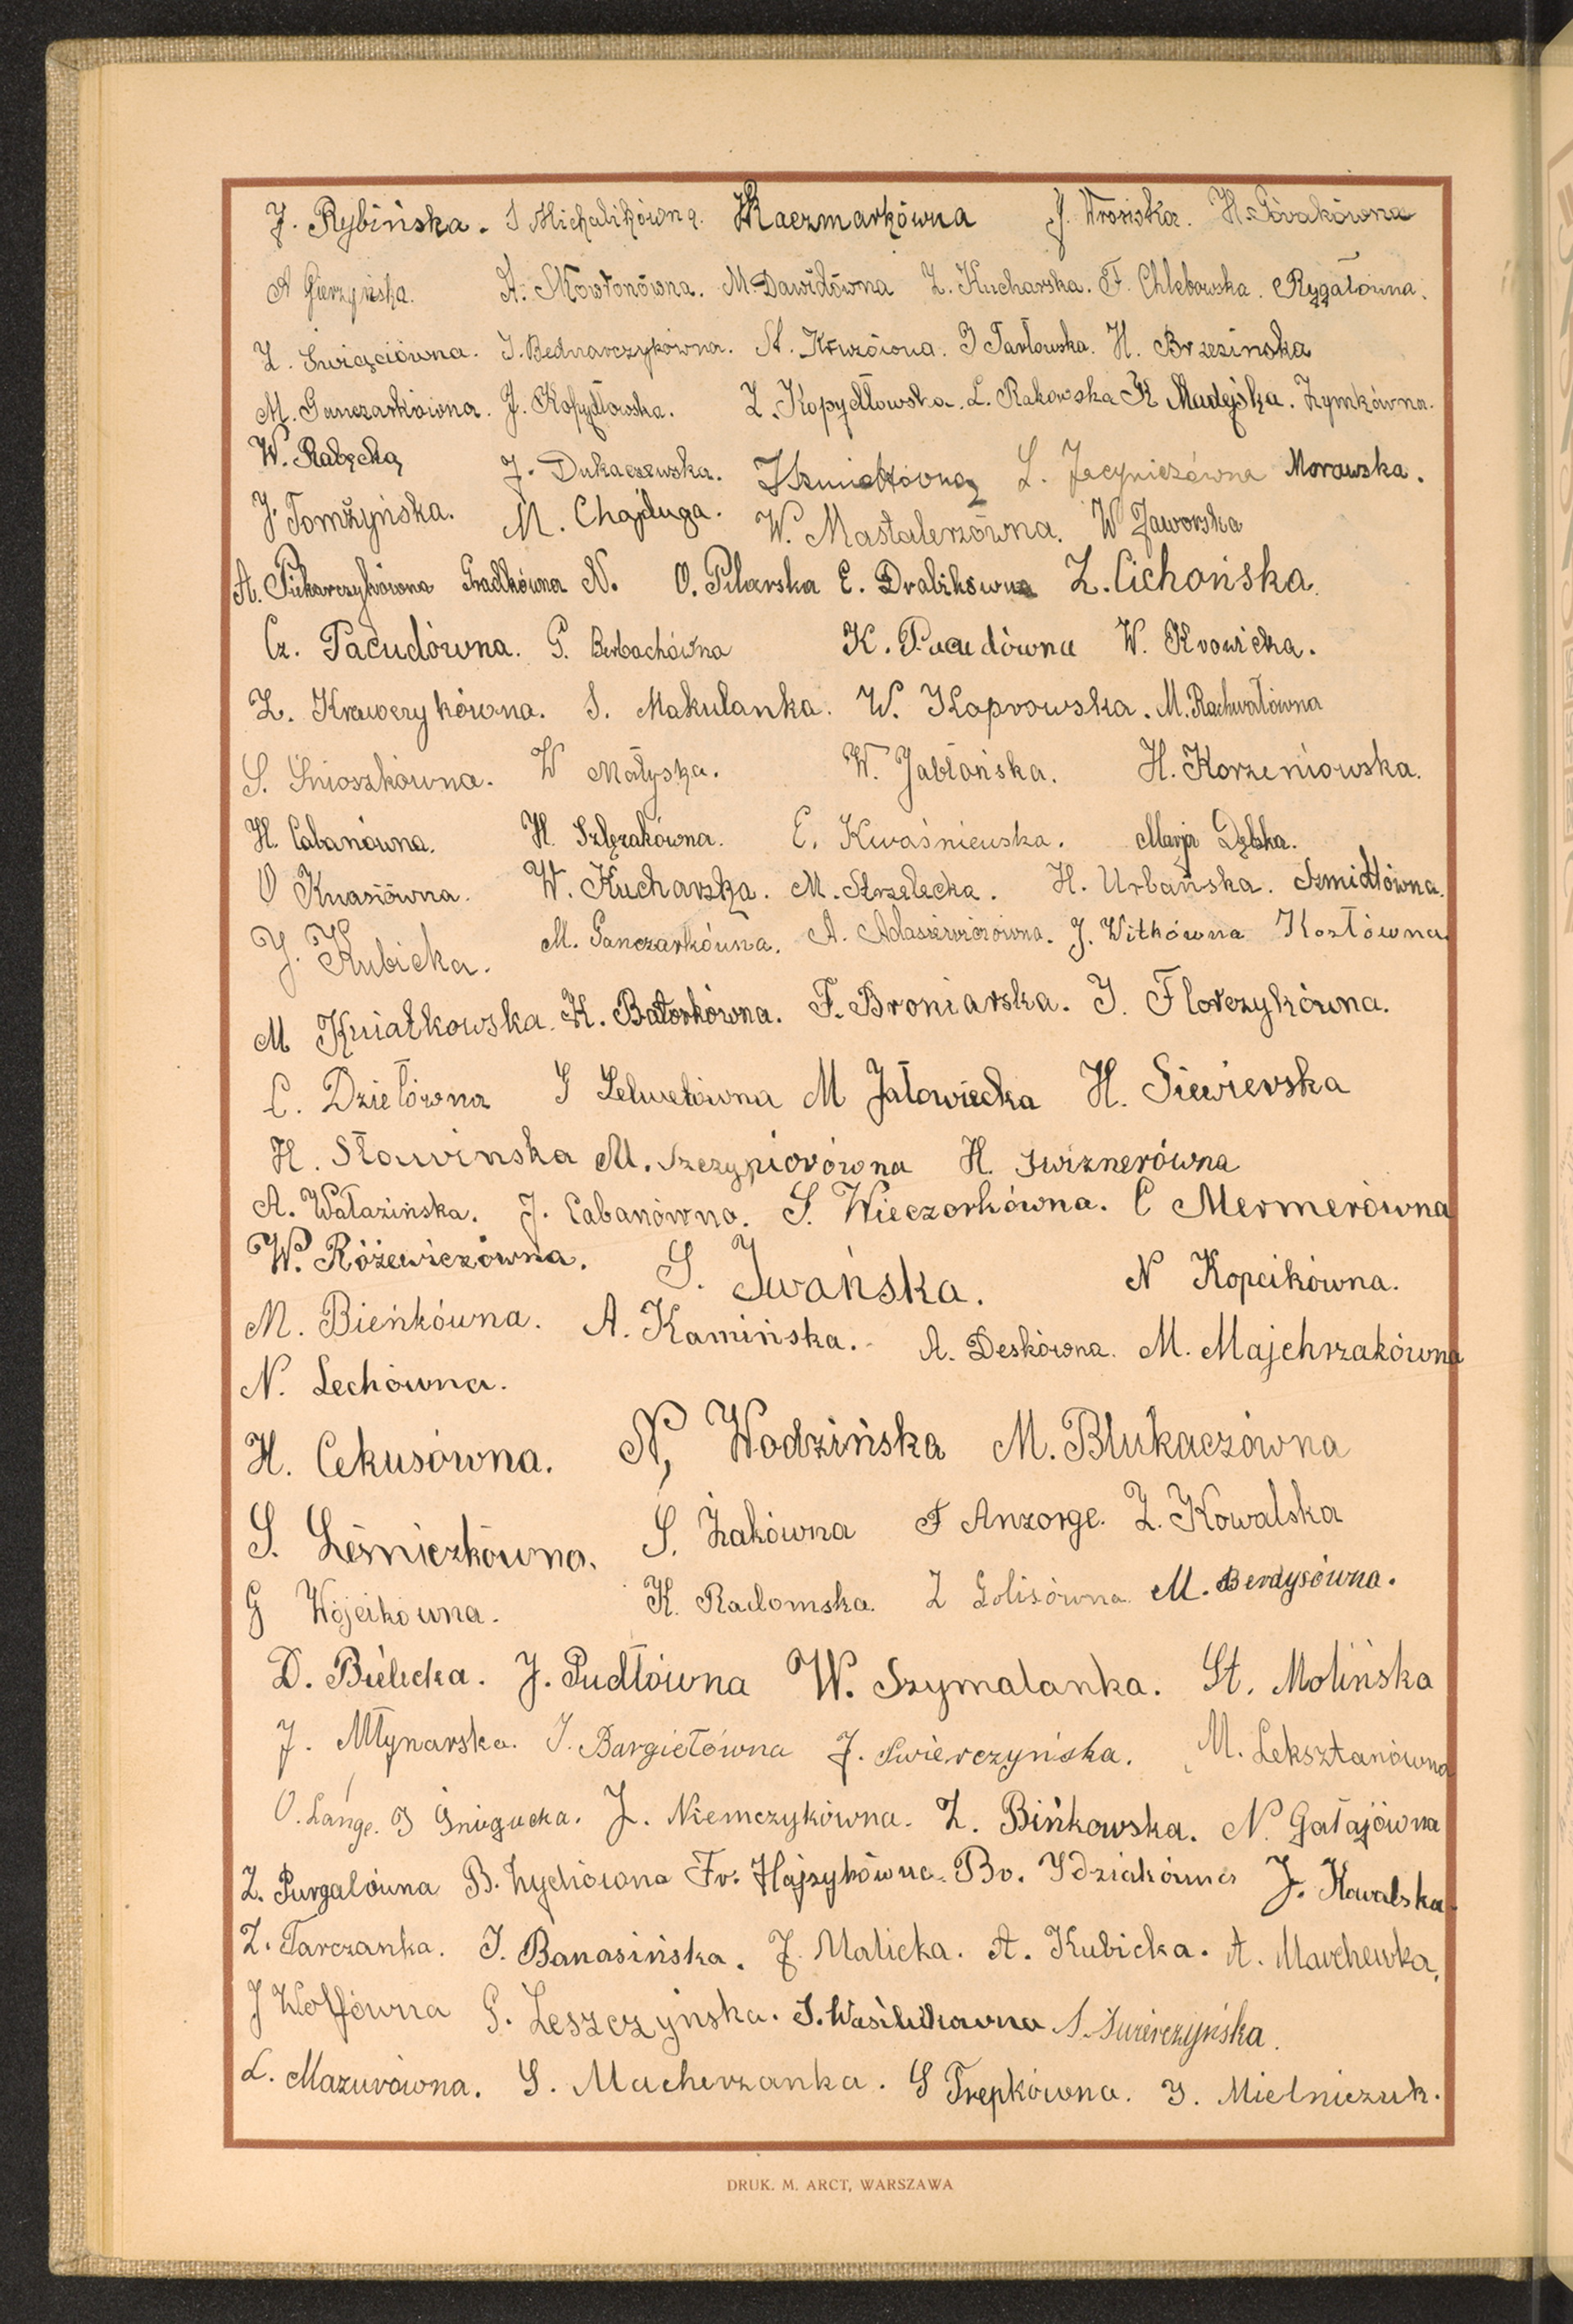 J. Rybińska. S Michalikówna. H Kaczmarkówna J. Wrońska. H. Górakówna
A Gierzyńska. A. Skowtonówna. M Dawidówna Z. Kucharska. F. Chlebowska. Rygałówna.
Z. Święciówna. J. Bednarczykówna. St. Kruzówna. J Pawłowska. H. Brzezinska
M. Ganczarkówna. J. Kopydłowska. Z. Kopydłowska. L. Rakowska K Madejska. Zymkówna.
W. Rabęcka J. Dukaczewska. J Szmidtówna L. Jacyniczówna Morawska.
J. Tomżyńska. M. Chajduga. W. Mastalerzówna. W Jaworska
A. Piekarczykówna Gradkówna N. O. Pilarska E. Drabikówna Z. Cichońska.
Cz. Pacudówna. G. Berbachówna K. Pacudówna W. Krowicka.
Z. Krawczykówna. S. Makulanka. W. Koprowska. M. Rachwałówna
S. Śnioszkówna. W Małyska. W. Jabłońska. H. Korzeniowska.
H. Cabanówna. H. Szlęzakówna. E. Kwaśniewska. Marja Dębska.
O Knasiówna. W. Kucharska. M. Strzelecka. H. Urbańska. Szmidtówna.
J. Kubicka. M. Ganczarkówna. A. Adasiewiczówna. J. Witkówna Kozłówna
M Kwiatkowska. K. Batorkówna. F. Broniarska. J. Florczykówna.
C. Dzielówna S Selwetówna M Jałowiecka H. Siewierska
H. Sławinska M. Szczypiorówna H. Zwiznerówna
A. Wałazińska. J. Cabanówna. S. Wieczorkówna. C Mermerówna
W. Różewiczówna. S. Iwańska. N Kopcikówna.
M. Bieńkówna. A. Kamińska. A. Deskówna. M. Majchrzakówna
N. Lechówna.
H. Cekusówna. N, Wodzińska M. Blukaczówna
S. Leśniczkówna. S. Żakówna F Anzorge. Z. Kowalska
G Wójcikówna. K. Radomska. Z Golisówna. M. Berdysówna.
D. Bielicka. J. Pudłówna W. Szymalanka. St. Molińska
J. Młynarska. J. Bargiełówna J. Swierczyńska. M. Leksztanówna
O. Lange. J Śniegucka. J. Niemczykówna. Z. Bińkowska. N. Gałajówna
Z. Purgalówna B. Zychówna Fr. Hajzykówna. Br. Idziakówna J. Kowalska.
Z. Tarczanka. J. Banasińska. J. Malicka. A. Kubicka. A. Marchewka.
J Wolfówna G. Leszczyńska. S. Wasilukówna S. Swierczyńska.
L. Mazurówna. S. Macherzanka. S Trepkówna. J. Mielniczuk.
DRUK. M. ARCT, WARSZAWA